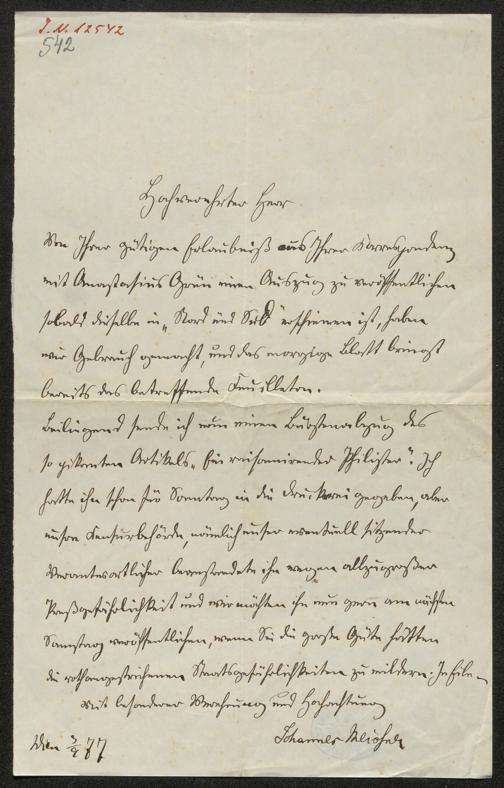 I. N. 12542
542
Hochverehrter Herr
Von Ihrer gütigen Erlaubniß aus Ihrer Korrespondenz
mit Anastasius Grün einen Auszug zu veröffentlichen
sobald dieselbe in „Nord und Süd" erschienen ist, haben
wir Gebrauch gemacht, und das morgige Blatt bringt
bereits das betreffende Feuilleton.
Beiliegend sende ich nun einen Bürstenabzug des
so pikanten Artikels „Ein raisonirender Philister". Ich
hatte ihn schon für Sonntag in die Druckerei gegeben, aber
unsre Censurbehörde, nämlich unser eventuell sitzender
Verantwortlicher beanstandete ihn wegen allzugroßer
Preßgefährlichkeit und wir möchten ihn nun gern am nächsten
Samstag veröffentlichen, wenn Sie die große Güte hätten
die rothangestrichenen Staatsgefährlichkeiten zu mildern. In Eile
mit besonderer Verehrung und Hochachtung
Johannes
Wien 3/9 77